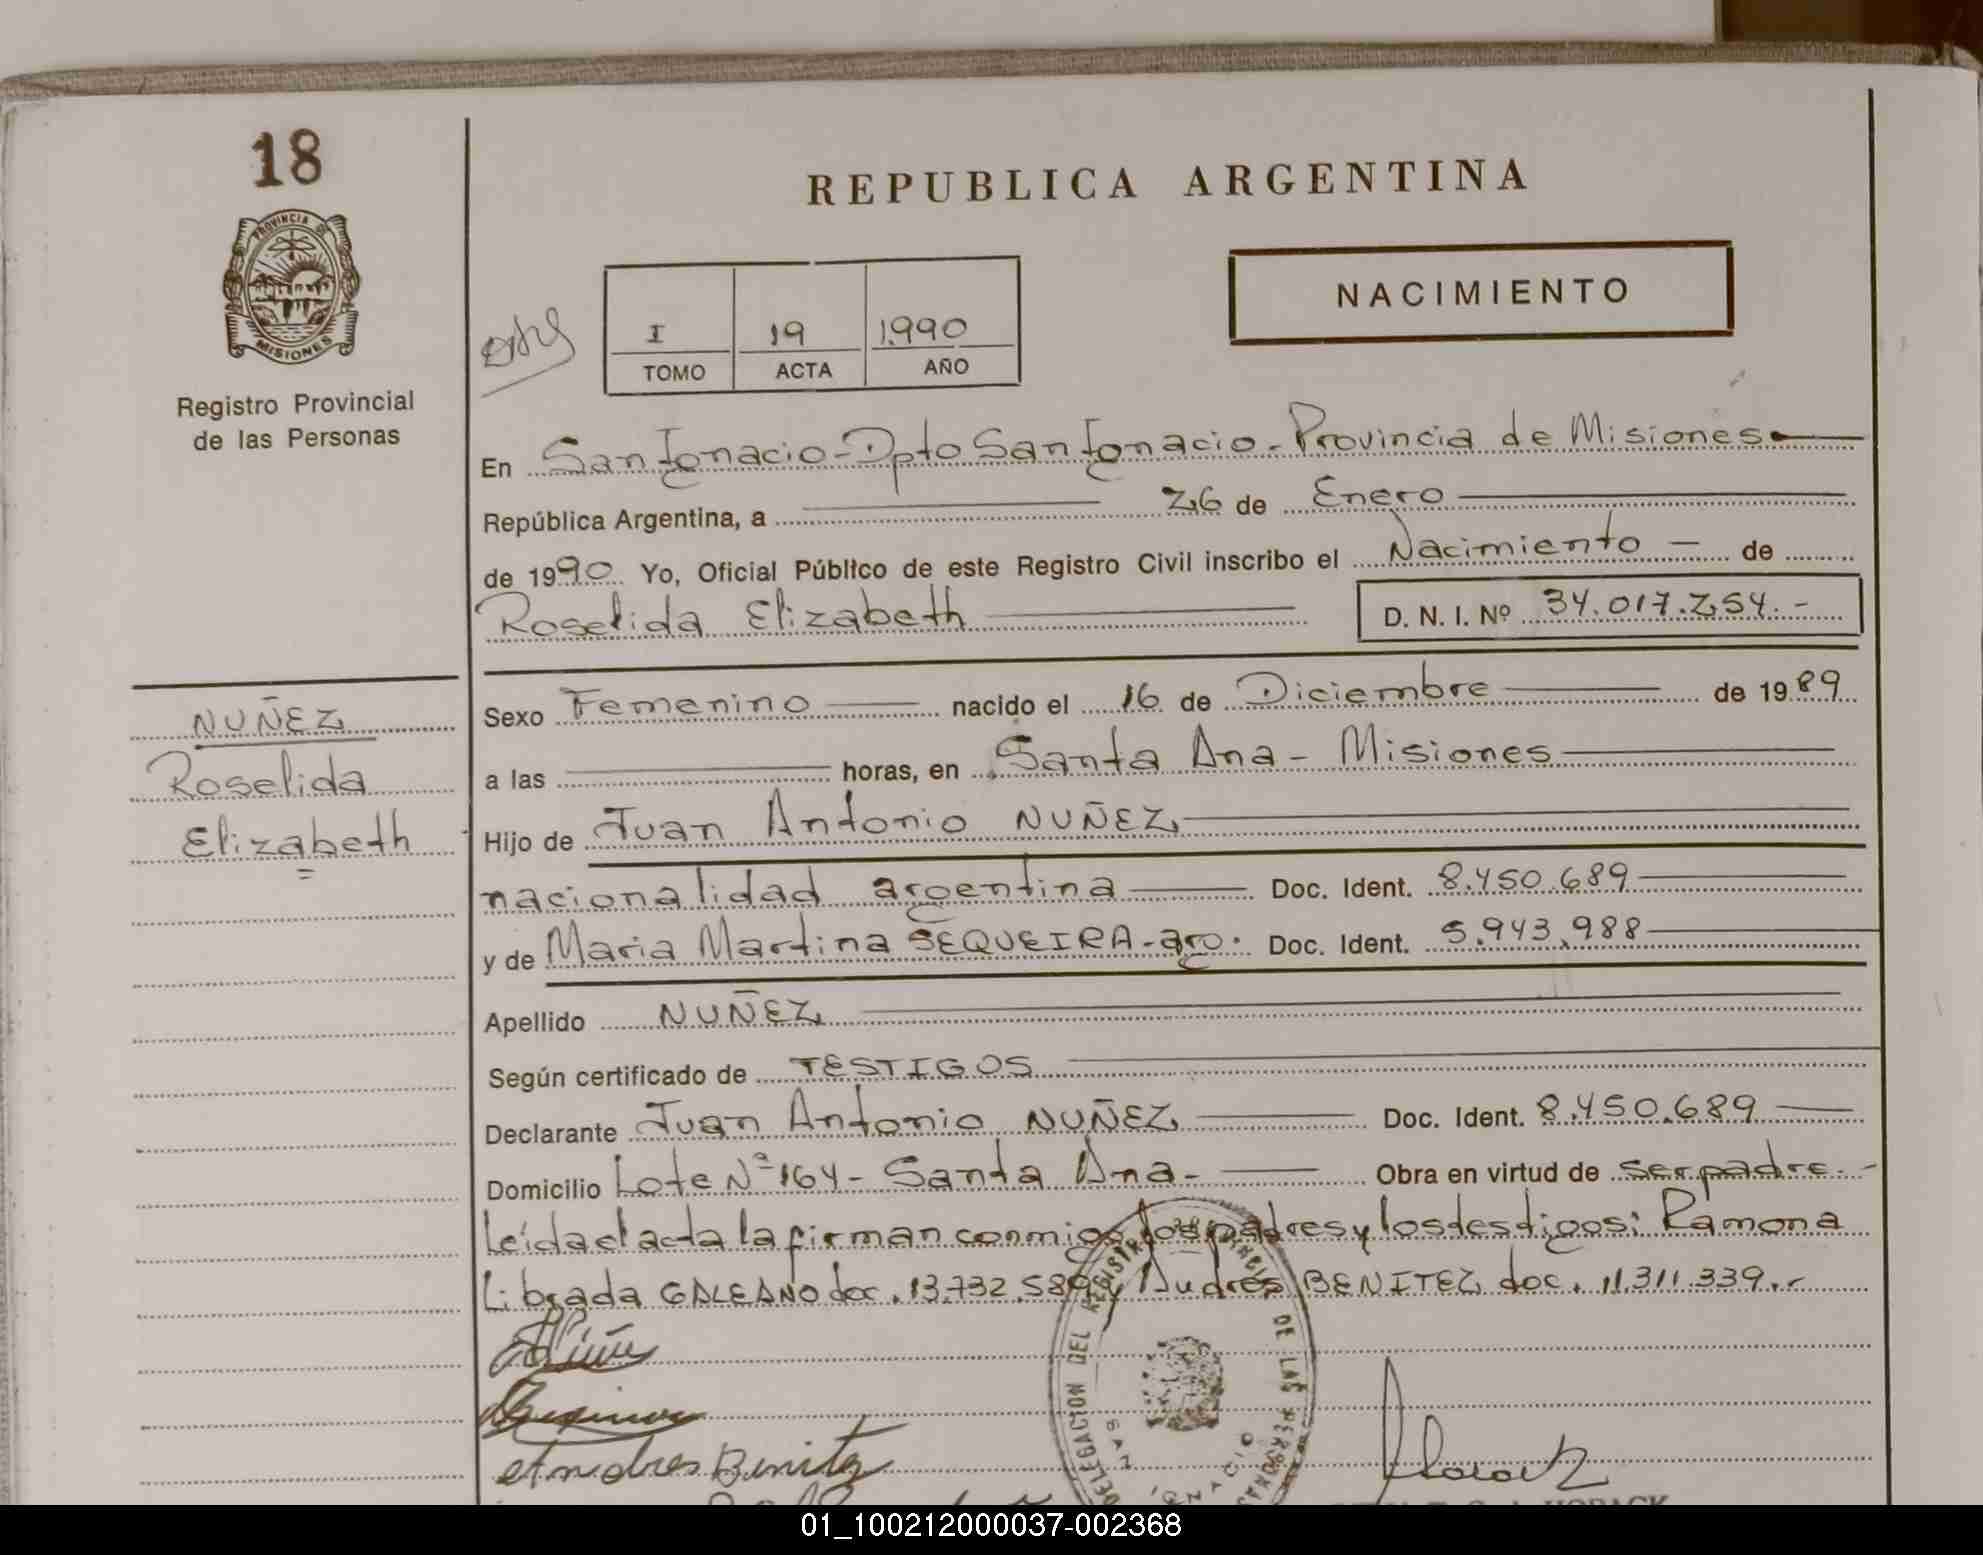 18
REPUBLICA ARGENTINA
PROVINCIA DE
MISIONES
Registro Provincial
de las Personas
NACIMIENTO
I 19 1.990
TOMO ACTA AÑO
En San Ignacio - Dpto San Ignacio - Provincia de Misiones
República Argentina, a 26 de Enero
de 1990 Yo, Oficial Público de este Registro Civil inscribo el Nacimiento - de
Roselida Elizabeth D. N. I. Nº 34.017.254.-
NUÑEZ
Roselida
Elizabeth
Sexo Femenino nacido el 16 de Diciembre de 1989
a las horas, en Santa Ana - Misiones
Hijo de Juan Antonio NUÑEZ
nacionalidad argentina Doc. Ident. 8.450.689
y de Maria Martina SEQUEIRA - arg. Doc. Ident. 5.943.988
Apellido NUÑEZ
Según certificado de TESTIGOS
Declarante Juan Antonio NUÑEZ Doc. Ident. 8.450.689
Domicilio Lote Nº 164 - Santa Ana - Obra en virtud de ser padre.-
Leída el acta la firman conmigo los padres y los testigos: Ramona
Librada GALEANO doc. 13.732.589 y Andres BENITEZ doc. 11.311.339.-
DELEGACION DEL REGISTRO PROVINCIAL DE LAS PERSONAS
SAN IGNACIO
Andres Benitez
01_100212000037-002368